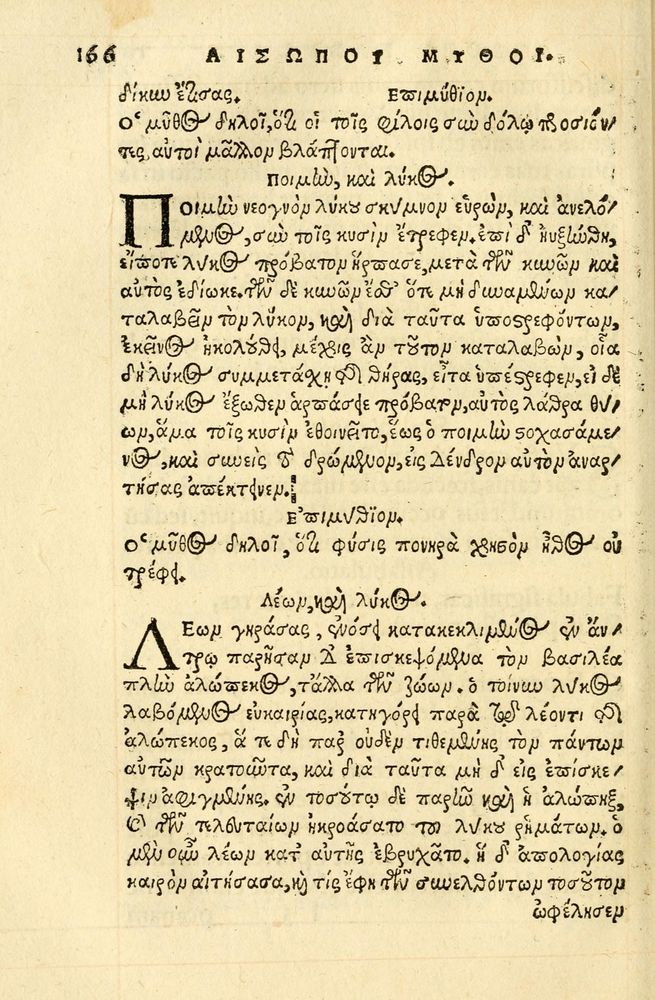 166 ΑΙΣΩΠΟΥ ΜΥΘΟΙ.
δίκην ἔτισας. Επιμύθιον.
Ο μῦθος δηλοῖ, ὅτι οἱ τοῖς φίλοις σὺν δόλῳ προσιόν/
τες, αὐτοὶ μᾶλλον βλάπτονται.
Ποιμὴν, καὶ λύκος.
ΠΟιμὴν νεογνὸν λύκου σκύμνον εὑρὼν, καὶ ἀνελό/
μενος, σὺν τοῖς κυσὶν ἔτρεφεν. ἐπεὶ δ' ηὐξήνθη,
εἴποτε λύκος πρόβατον ἥρπασε, μετὰ τῶν κυνῶν καὶ
αὐτὸς ἐδίωκε. τῶν δὲ κυνῶν ἔσθ' ὅτε μὴ δυναμένων κα/
ταλαβεῖν τὸν λύκον, καὶ διὰ ταῦτα ὑποστρεφόντων,
ἐκεῖνος ἠκολούθει, μέχρις ἂν τοῦτον καταλαβὼν, οἷα
δὴ λύκος συμμετάσχῃ τῆς θήρας, εἶτα ὑπέστρεφεν, εἰ δὲ
μὴ λύκος ἔξωθεν ἁρπάσειε πρόβατον, αὐτὸς λάθρα θύ/
ων, ἅμα τοῖς κυσὶν ἐθοινεῖτο, ἕως ὁ ποιμὴν στοχασάμε/
νος, καὶ συνεὶς τὸ δρώμενον, εἰς δένδρον αὐτὸν ἀναρ/
τήσας ἀπέκτεινεν.
Επιμύθιον.
Ο μῦθος δηλοῖ, ὅτι φύσις πονηρὰ χρηστὸν ἦθος οὐ
τρέφει.
Λέων, καὶ λύκος.
ΛΕων γηράσας, ἐνόσει κατακεκλιμένος ἐν ἄν/
τρῳ παρῆσαν δ' ἐπισκεψόμενα τὸν βασιλέα
πλὴν ἀλώπεκος, τἆλλα τῶν ζώων. ὁ τοίνυν λύκος
λαβόμενος εὐκαιρίας, κατηγόρει παρὰ τῷ λέοντι τῆς
ἀλώπεκος, ἅτε δὴ παρ' οὐδὲν τιθεμένης τὸν πάντων
αὐτῶν κρατοῦντα, καὶ διὰ ταῦτα μὴ δ' εἰς ἐπίσκε/
ψιν ἀφιγμένης. ἐν τοσούτῳ δὲ παρῆν καὶ ἡ ἀλώπηξ,
καὶ τῶν τελευταίων ἠκροάσατο τοῦ λύκου ῥημάτων. ὁ
μὲν οὖν λέων κατ' αὐτῆς ἐβρυχᾶτο. ἡ δ' ἀπολογίας
καιρὸν αἰτήσασα, καὶ τίς ἔφη τῶν συνελθόντων τοσοῦτον
ὠφέλησεν